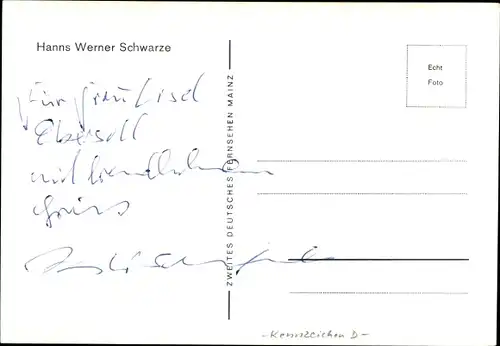 Hanns Werner Schwarze
Für Frau Lisel
Ebersoll
mit freundlichem
Gruß
ZWEITES DEUTSCHES FERNSEHEN MAINZ
Echt
Foto
- Kennzeichen D -